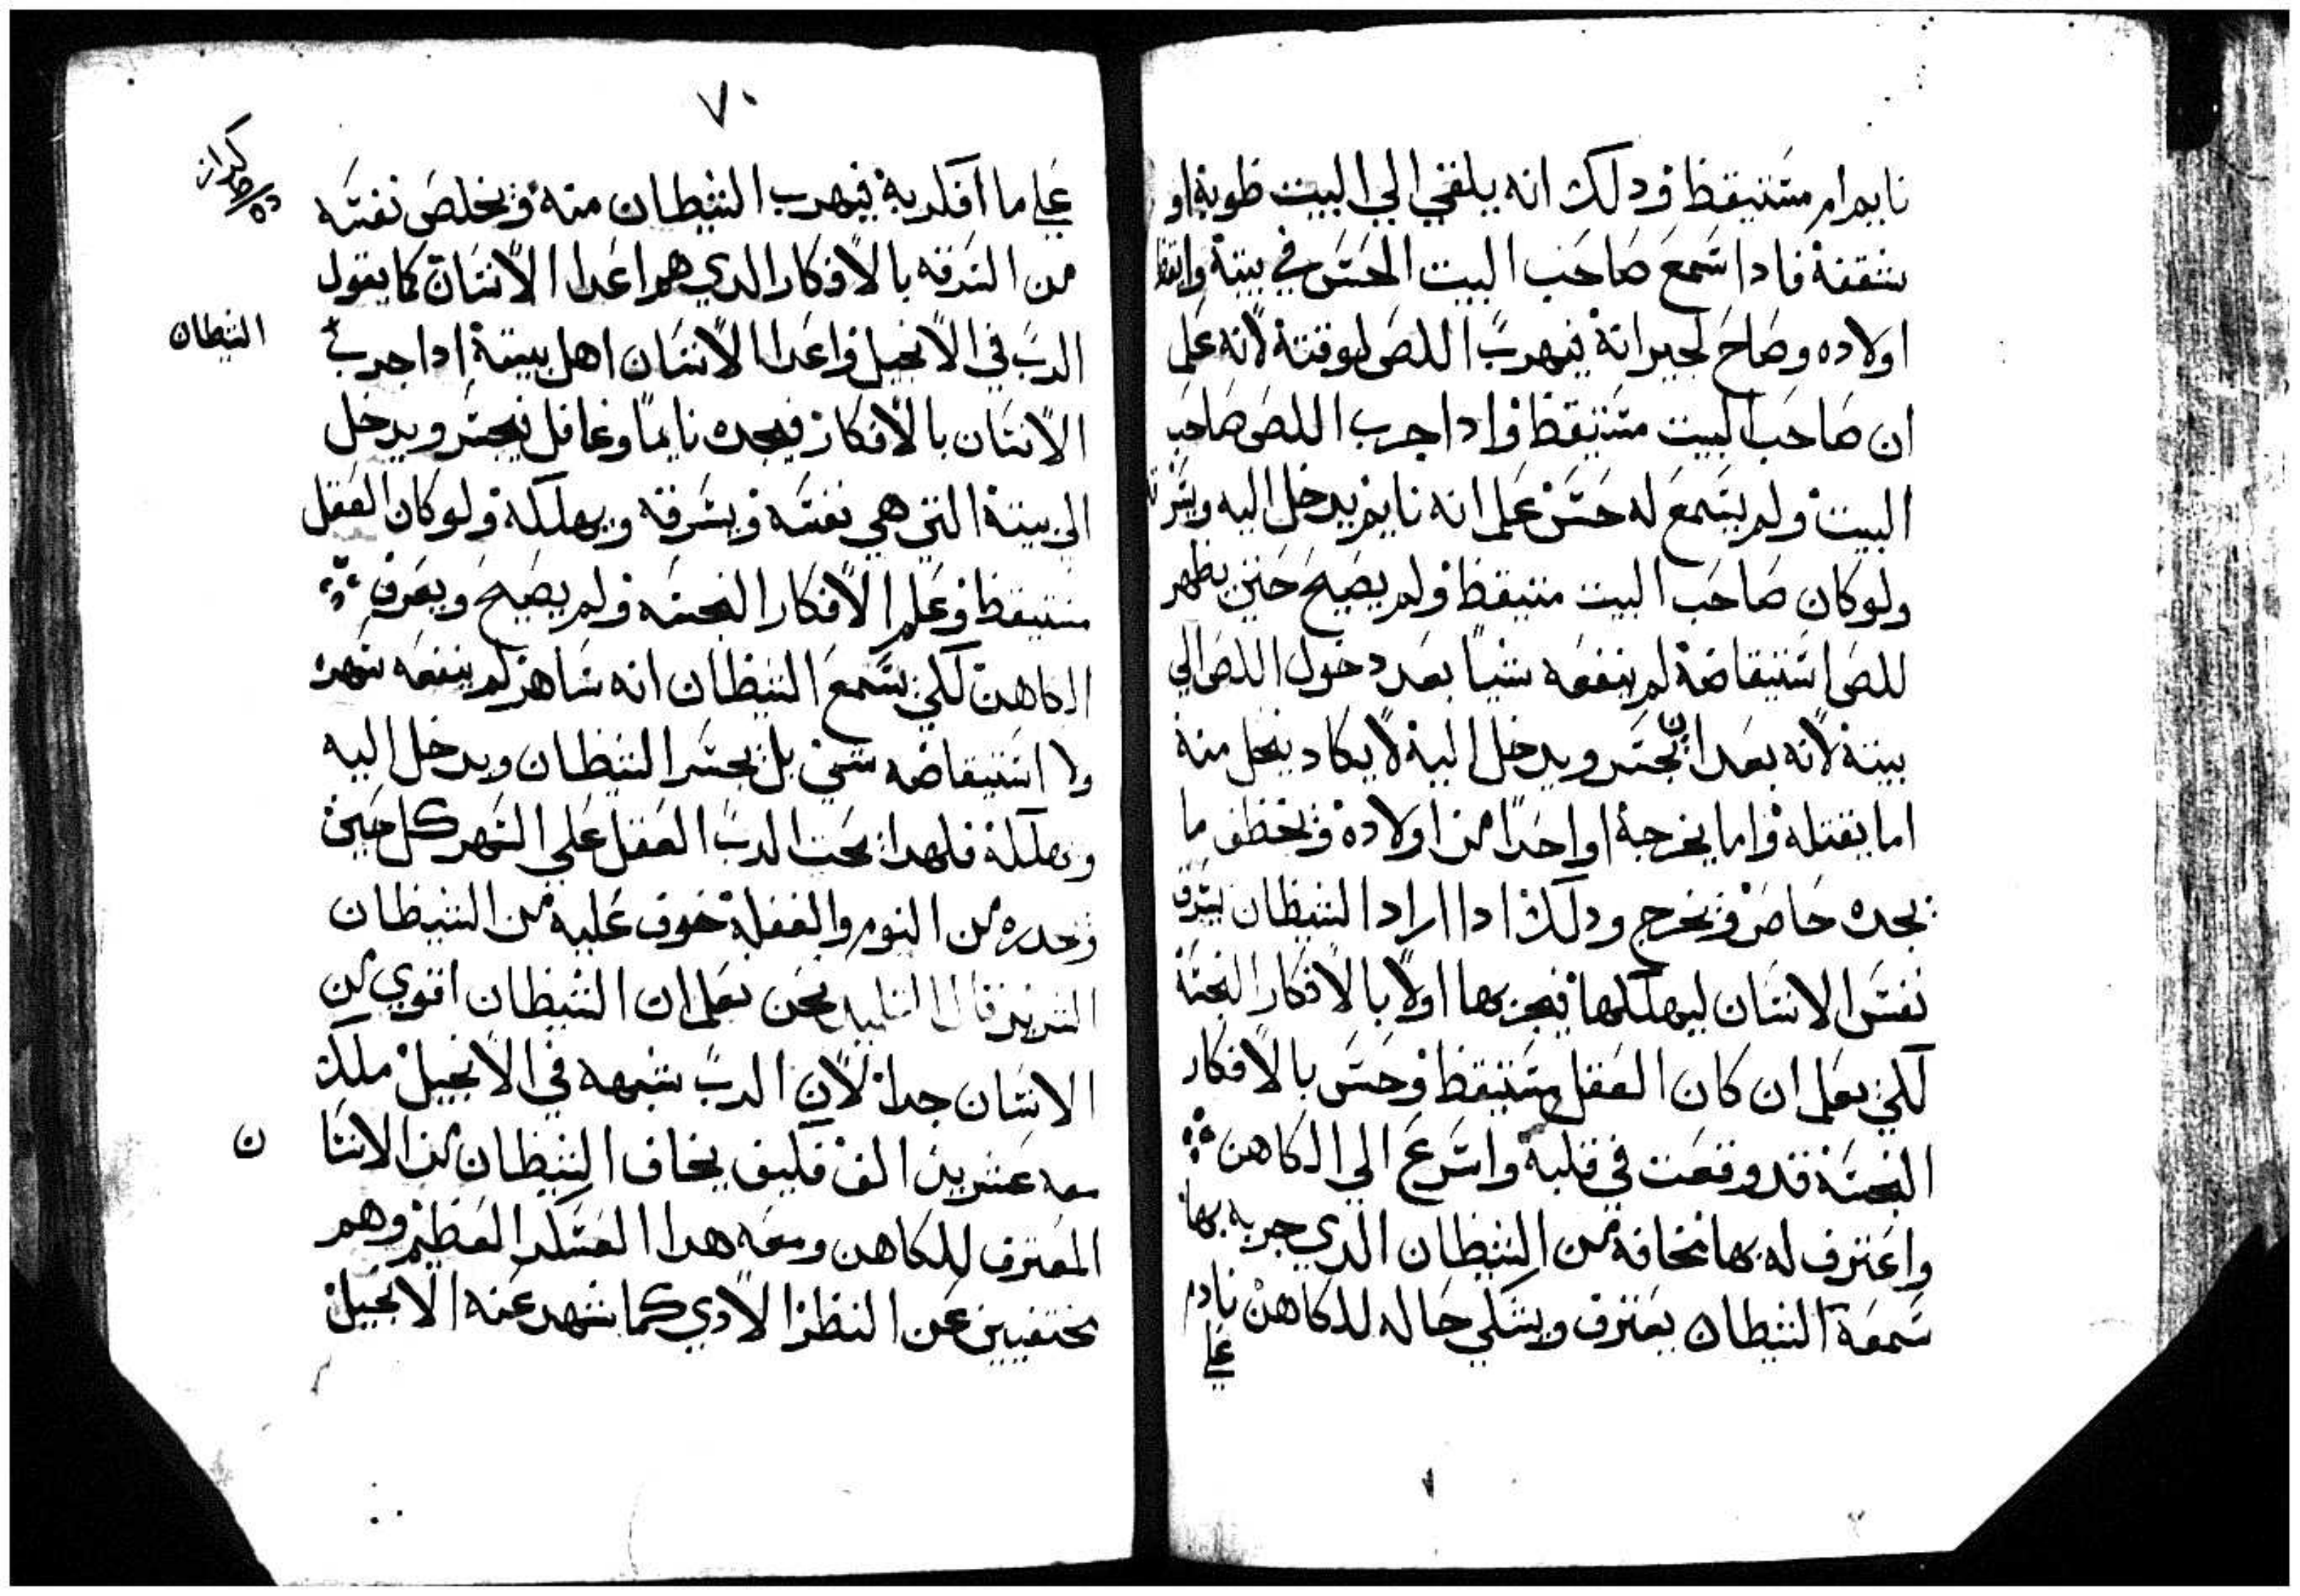 نايم ام متتيقظ ودلك انه يلقي الي البيت طوبة او
شقفة فادا سمع صاحب البيت الحس في بيتة وايقظ
اولاده وصاح لجيرانة فيهرب اللص لوقتة لانه علم
ان صاحب البيت متيقظ وادا جرب اللص صاحب
البيت ولم يسمع له حس علم انه نايم يدخل اليه ويسرقه
ولو كان صاحب البيت متيقظ ولم يصيح حتي يظهر
للص استيقاضة لم ينفعه شيا بعد دخول اللص الي
بيتة لانه بعد ان يجسر ويدخل الية لا يكاد يفعل منة
اما يقتلة واما يخرجة او احدا من اولادة ويخطف ما
يجده حاضر ويخرج ودلك ادا اراد الشيطان يسرق
نفس الانسان ليهلكها فيجربها اولا بالافكار النجسة
لكي يعلم ان كان العقل متيقظ وحس بالافكار
النجسة قد وقعت في قلبة واسرع الي الكاهن
واعترف له بها مخافة من الشيطان الدي جربه بها
سمعة الشيطان يعترف ويشكي حاله للكاهن نادم
علي
٧٠
علي ما افكر بة فيهرب الشيطان منة ويخلص نفسه
من السرقه بالافكار الدي هم اعدا الانسان كما يقول
الرب في الانجيل واعدا الانسان اهل بيتة ادا جرب
الشيطان
الانسان بالافكار فيجده نايما وغافل فيجسر ويدخل
الي بيتة التي هي نفسه ويسرقه ويهلكة ولو كان العقل
متيقظ وعلم الافكار النجسه ولم يصيح ويعرف
الكاهن لكي يسمع الشيطان انه ساهر لم ينفعه سهره
ولا استيقاضه شي بل يجسر الشيطان ويدخل اليه
ويهلكة فلهدا يحت الرب العقل علي السهر كل حين
ويحدره من النوم والغفلة خوف عليه من الشيطان
الشرير قال التلميد نحن نعلم ان الشيطان اقوي من
الانسان جدا لان الرب شبهه في الانجيل ملك
معه عشرين الف فكيف يخاف الشيطان من الانسا
ن
المعترف للكاهن ومعه هدا العسكر العظيم وهم
مختفيين عن النظر الادي كما شهد عنه الانجيل